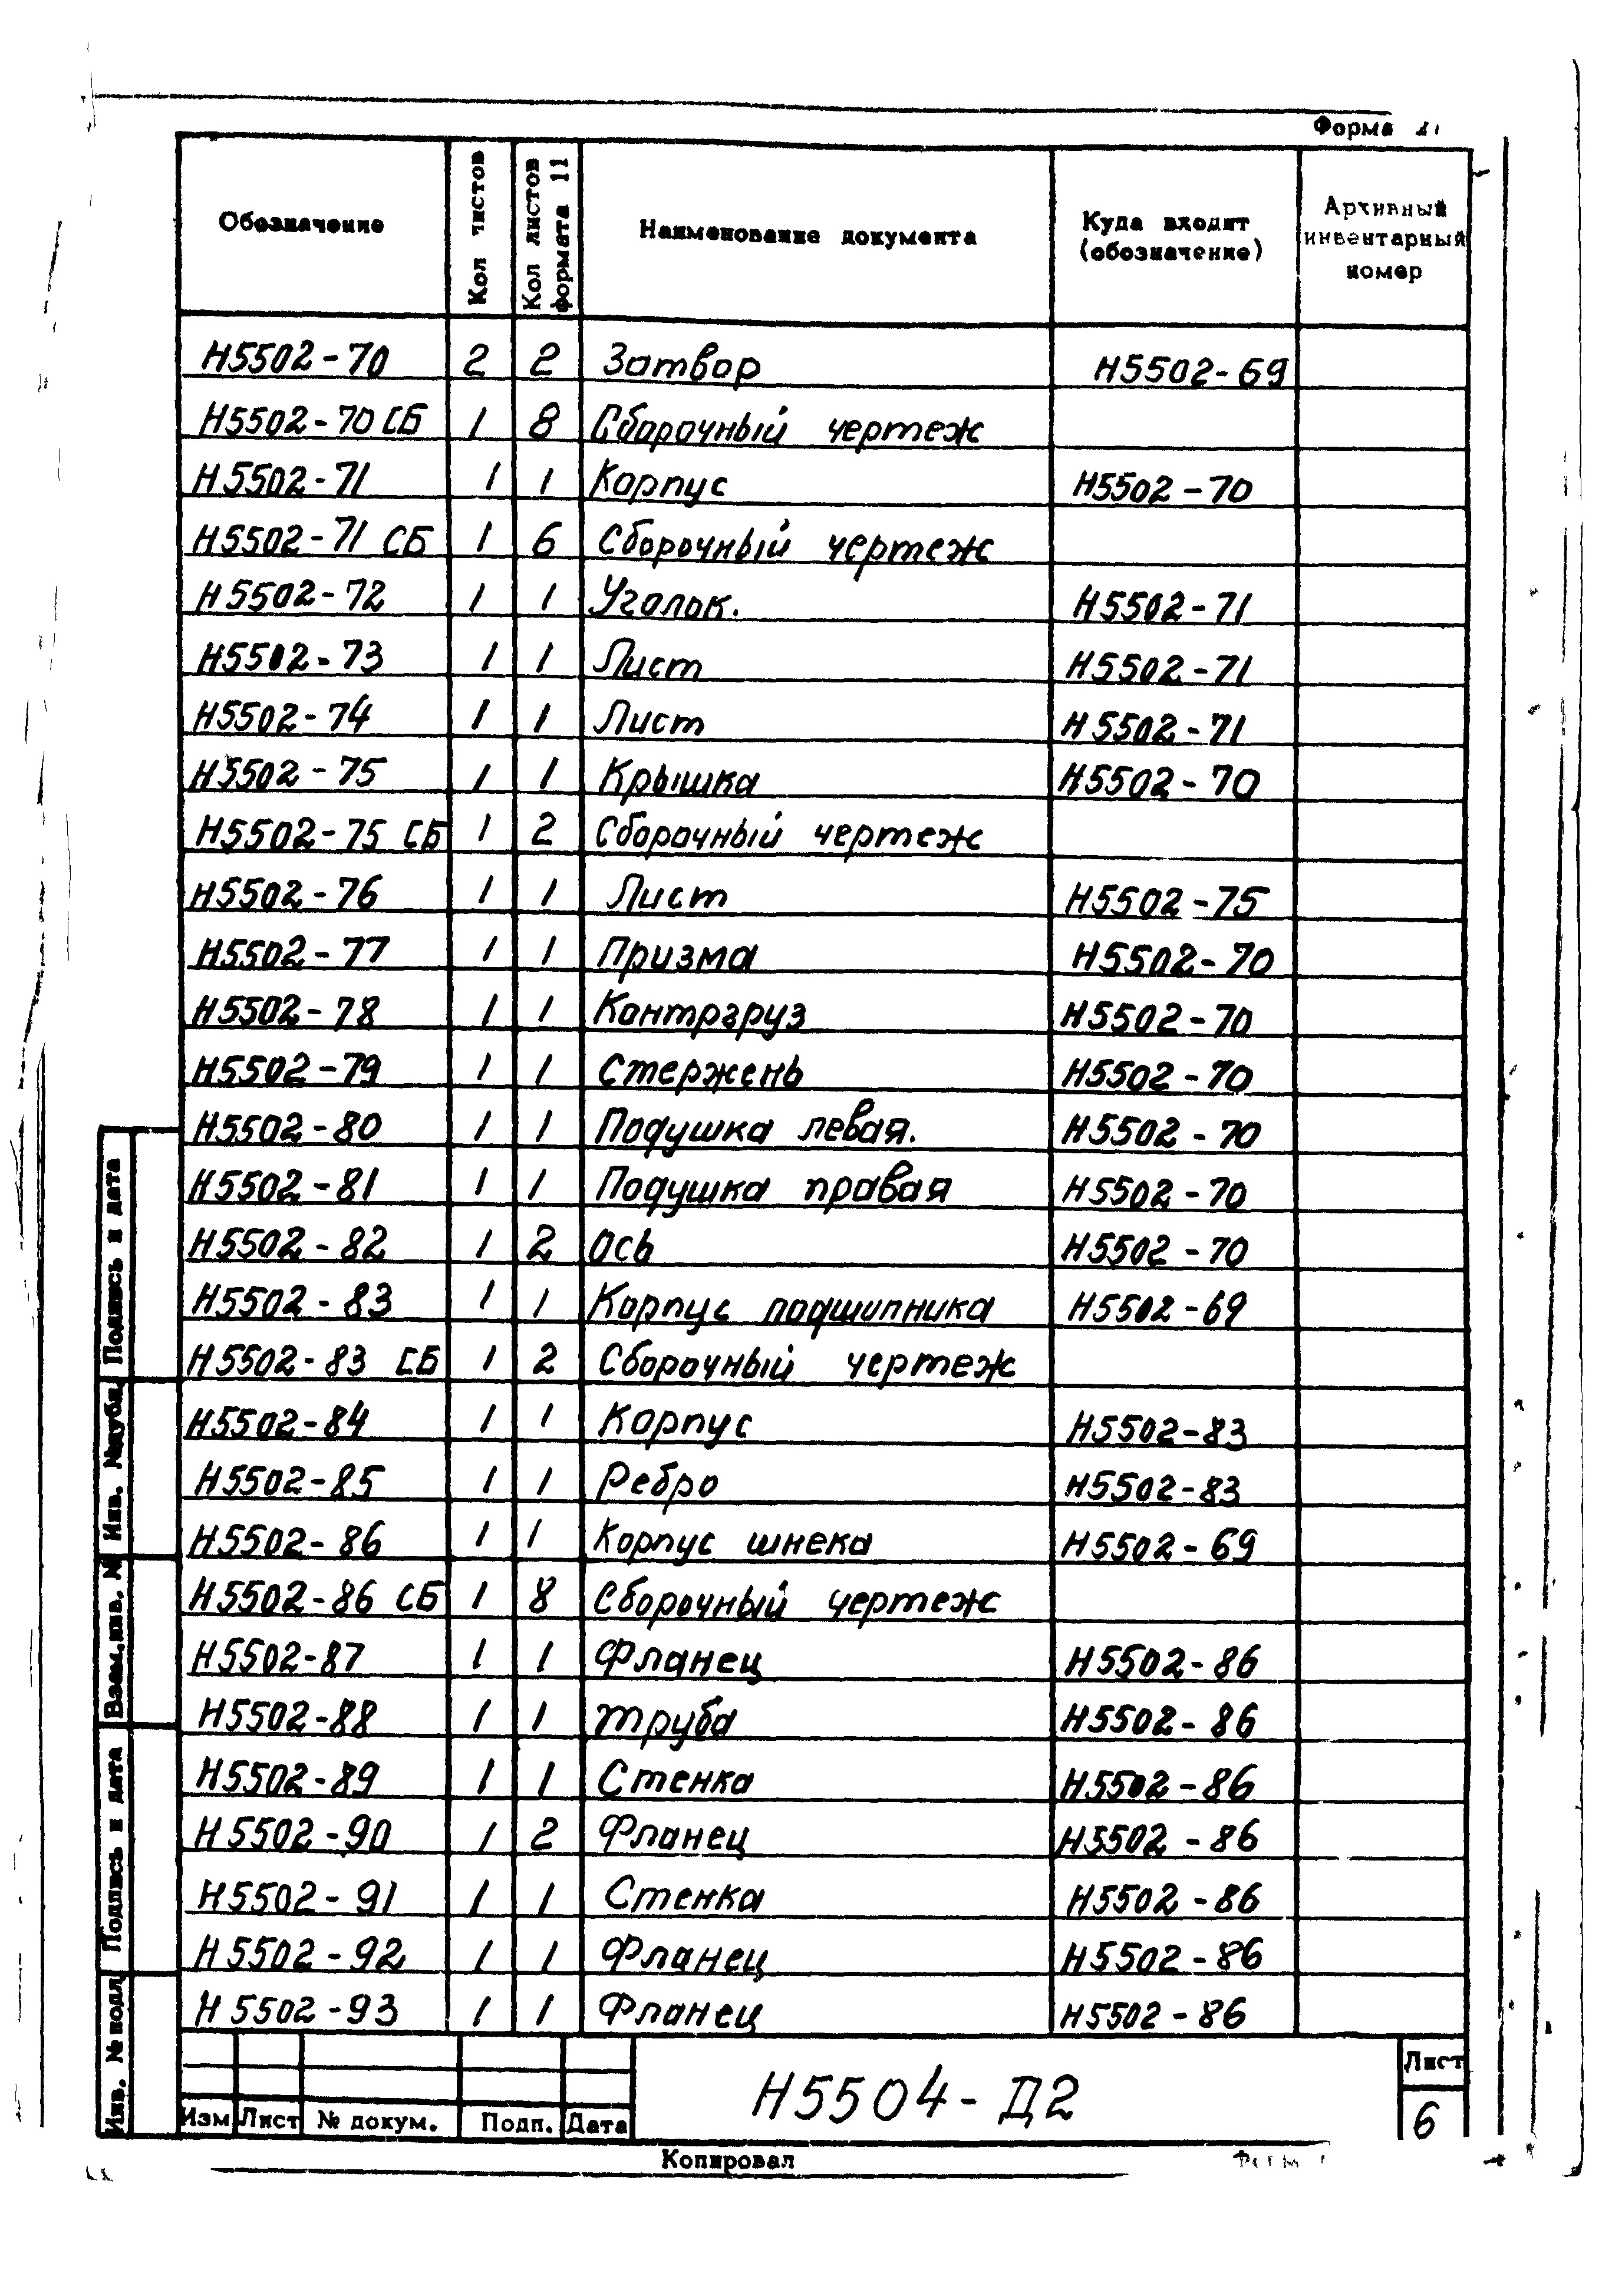 Форма
Обозначение Кол листов Кол листов формата 11 Наименование документа Куда входит (обозначение) Архивный инвентарный номер
Н5502-70 2 2 Затвор Н5502-69
Н5502-70 СБ 1 8 Сборочный чертеж
Н5502-71 1 1 Корпус Н5502-70
Н5502-71 СБ 1 6 Сборочный чертеж
Н5502-72 1 1 Уголок. Н5502-71
Н5502-73 1 1 Лист Н5502-71
Н5502-74 1 1 Лист Н5502-71
Н5502-75 1 1 Крышка Н5502-70
Н5502-75 СБ 1 2 Сборочный чертеж
Н5502-76 1 1 Лист Н5502-75
Н5502-77 1 1 Призма Н5502-70
Н5502-78 1 1 Контргруз Н5502-70
Н5502-79 1 1 Стержень Н5502-70
Н5502-80 1 1 Подушка левая. Н5502-70
Н5502-81 1 1 Подушка правая Н5502-70
Н5502-82 1 2 Ось Н5502-70
Н5502-83 1 1 Корпус подшипника Н5502-69
Н5502-83 СБ 1 2 Сборочный чертеж
Н5502-84 1 1 Корпус Н5502-83
Н5502-85 1 1 Ребро Н5502-83
Н5502-86 1 1 Корпус шнека Н5502-69
Н5502-86 СБ 1 8 Сборочный чертеж
Н5502-87 1 1 Фланец Н5502-86
Н5502-88 1 1 Труба Н5502-86
Н5502-89 1 1 Стенка Н5502-86
Н5502-90 1 2 Фланец Н5502-86
Н5502-91 1 1 Стенка Н5502-86
Н5502-92 1 1 Фланец Н5502-86
Н5502-93 1 1 Фланец Н5502-86
Подпись и дата
Инв. №дубл.
Взам.инв. №
Подпись и дата
Инв. № подл
Изм Лист № докум. Подп. Дата
Н5504-Д2
Лист
6
Копировал